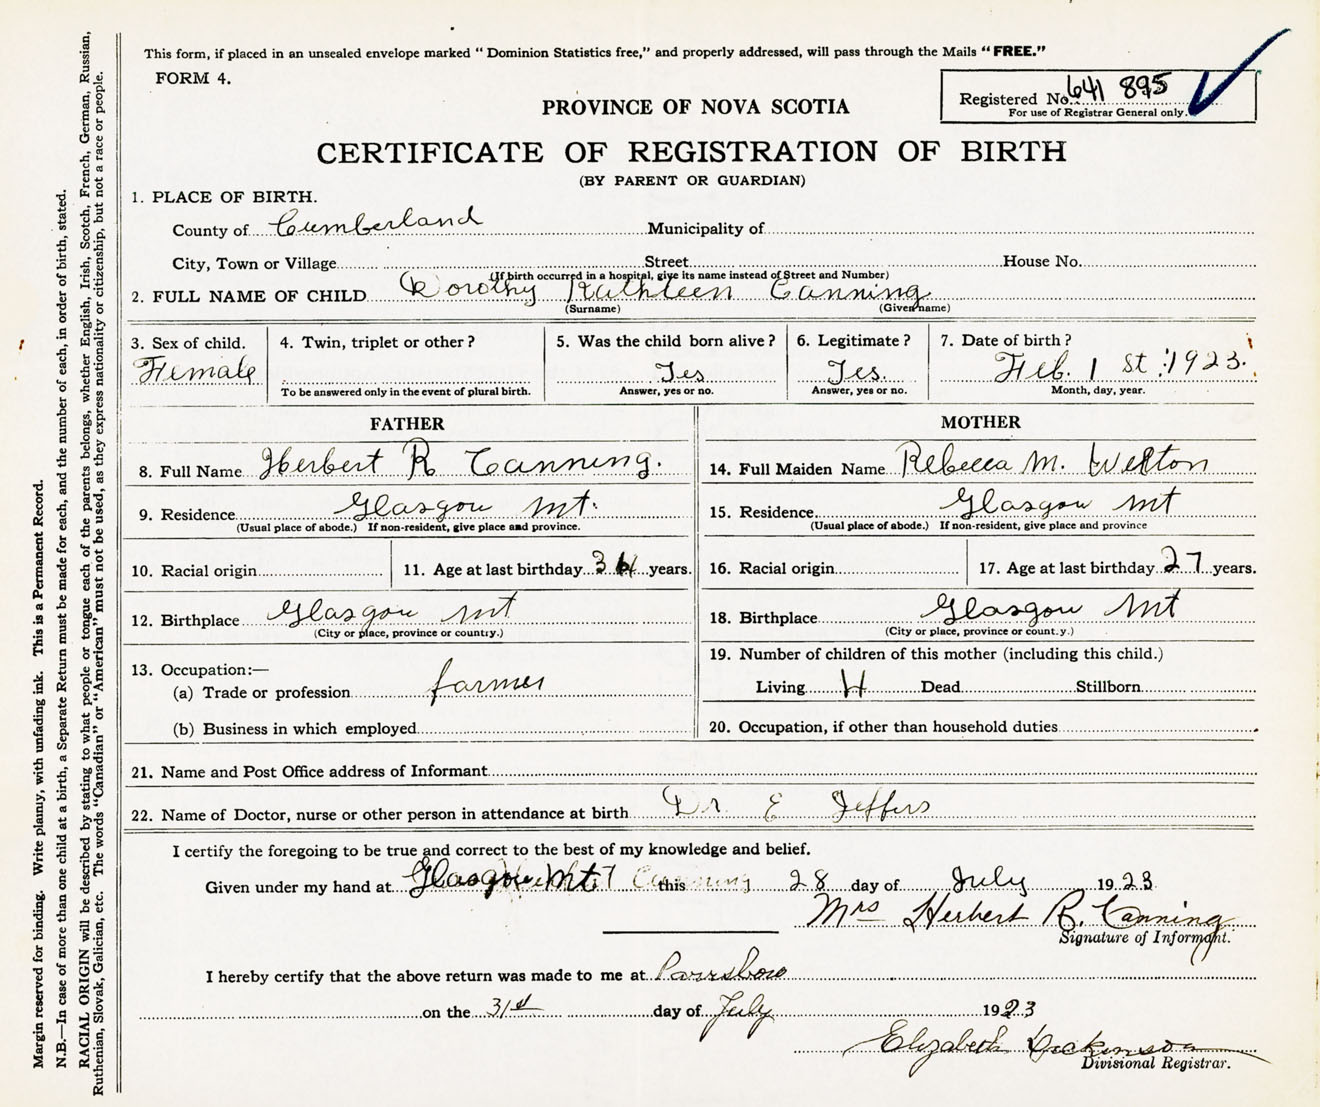 This form, if placed in an unsealed envelope marked "Dominion Statistics free," and properly addressed, will pass through the Mails "FREE."
FORM 4.
Registered No. 641 895
For use of Registrar General only.
PROVINCE OF NOVA SCOTIA
CERTIFICATE OF REGISTRATION OF BIRTH
(BY PARENT OR GUARDIAN)
1. PLACE OF BIRTH.
County of Cumberland Municipality of
City, Town or Village Street House No.
(If birth occurred in a hospital, give its name instead of Street and Number)
2. FULL NAME OF CHILD Dorothy Kathleen Canning
(Surname) (Given name)
3. Sex of child. 4. Twin, triplet or other? 5. Was the child born alive? 6. Legitimate? 7. Date of birth?
Female Yes Yes. Feb. 1 St 1923.
To be answered only in the event of plural birth. Answer, yes or no. Answer, yes or no. Month, day, year.
FATHER MOTHER
8. Full Name Herbert R Canning. 14. Full Maiden Name Rebecca M. Welton
9. Residence Glasgow Mt. 15. Residence Glasgow Mt
(Usual place of abode.) If non-resident, give place and province. (Usual place of abode.) If non-resident, give place and province
10. Racial origin 11. Age at last birthday years. 16. Racial origin 17. Age at last birthday 27 years.
12. Birthplace Glasgow Mt 18. Birthplace Glasgow Mt
(City or place, province or country.) (City or place, province or country.)
13. Occupation:— 19. Number of children of this mother (including this child.)
(a) Trade or profession farmer Living 4 Dead Stillborn
(b) Business in which employed 20. Occupation, if other than household duties
21. Name and Post Office address of Informant
22. Name of Doctor, nurse or other person in attendance at birth Dr. E Jeffers
I certify the foregoing to be true and correct to the best of my knowledge and belief.
Given under my hand at Glasgow Mt this 28 day of July 1923
Mrs Herbert R. Canning
Signature of Informant.
I hereby certify that the above return was made to me at Parrsboro
on the 31st day of July 1923
Elizabeth Dickinson
Divisional Registrar.
Margin reserved for binding. Write plainly, with unfading ink. This is a Permanent Record.
N.B.—In case of more than one child at a birth, a Separate Return must be made for each, and the number of each, in order of birth, stated.
RACIAL ORIGIN will be described by stating to what people or tongue each of the parents belongs, whether English, Irish, Scotch, French, German, Russian,
Ruthenian, Slovak, Galician, etc. The words "Canadian" or "American" must not be used, as they express nationality or citizenship, but not a race or people.